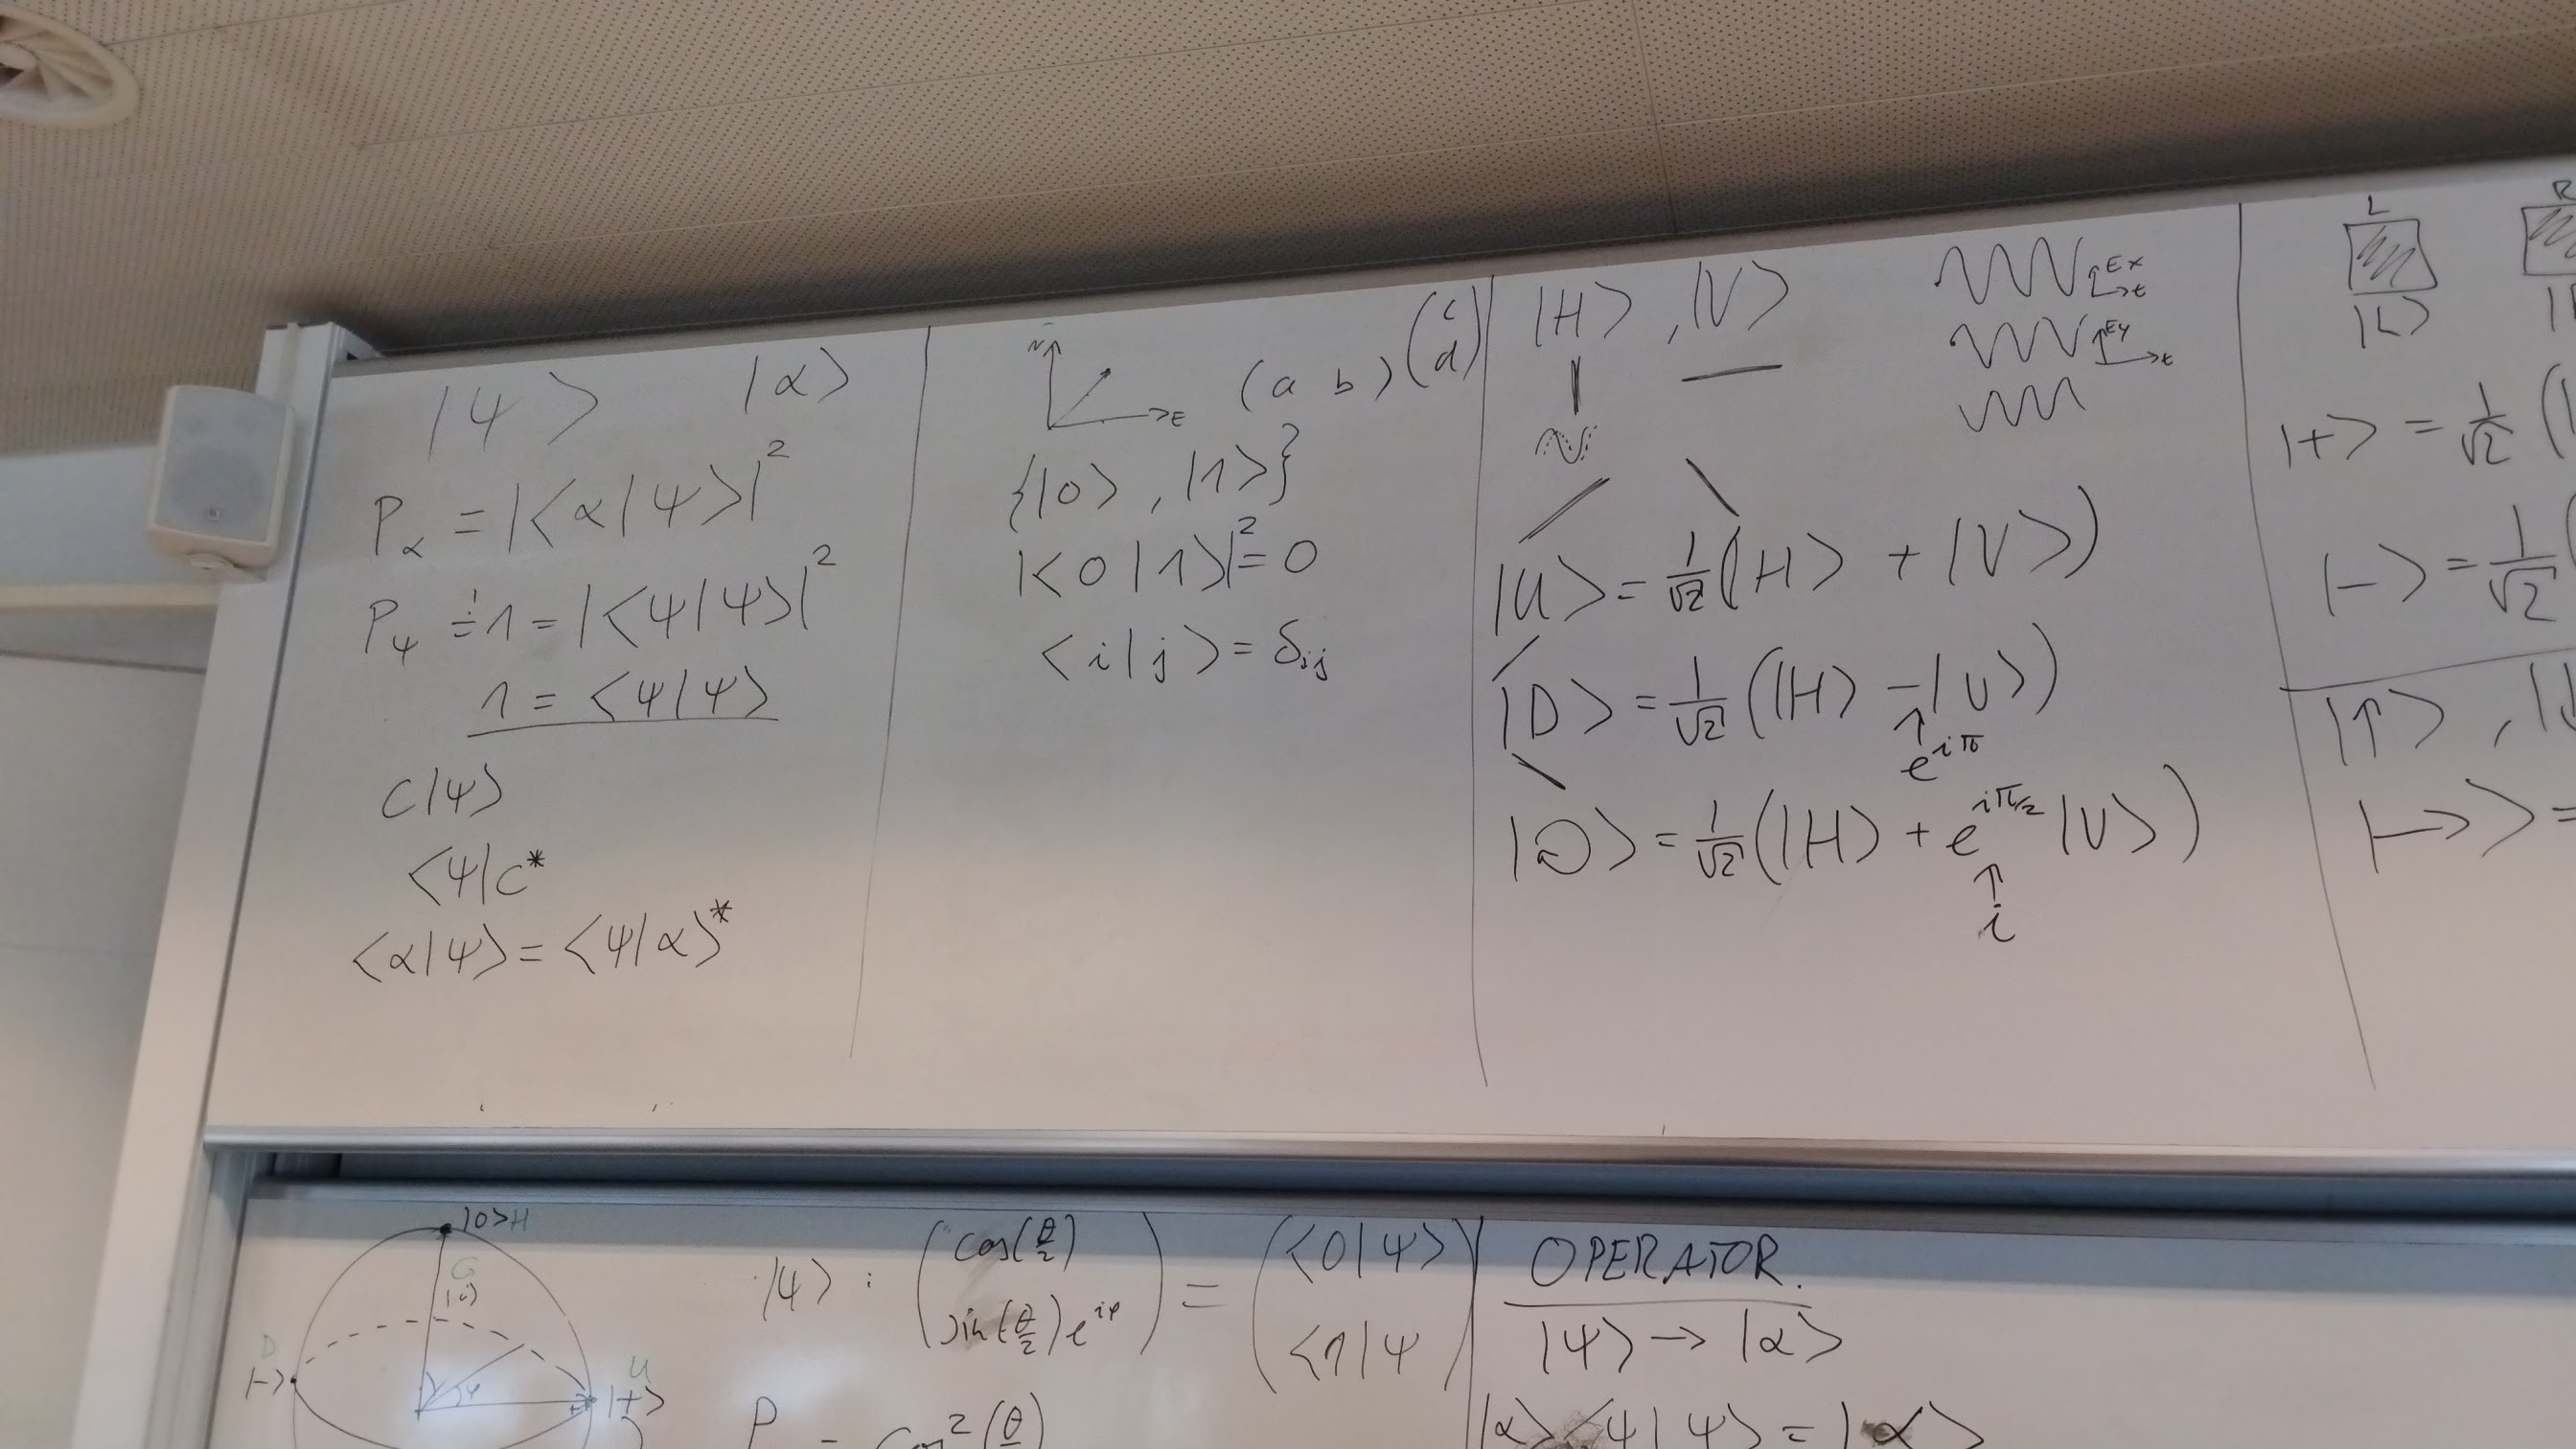 |ψ> |α>
P_α = |<α|ψ>|²
P_ψ =! 1 = |<ψ|ψ>|²
1 = <ψ|ψ>
c|ψ>
<ψ|c*
<α|ψ> = <ψ|α>*
N E (a b) (c d)
{|0>, |1>}
|<0|1>|² = 0
<i|j> = δ_ij
|H>, |V>
Ex t
Ey t
|U> = 1/√2 (|H> + |V>)
|D> = 1/√2 (|H> - |V>)
↑ e^{iπ}
|↻> = 1/√2 (|H> + e^{iπ/2} |V>)
↑
i
L R
|L> |
|+> = 1/√2 (
|-> = 1/√2 (
|↑>, |↓
|→> =
|0> H
G
|i>
D
|->
φ
U
|+>
|ψ> : (cos(θ/2) sin(θ/2)e^{iφ}) = (<0|ψ> <1|ψ)
P = cos²(θ
OPERATOR.
|ψ> → |α>
|α><ψ|ψ> = |α>